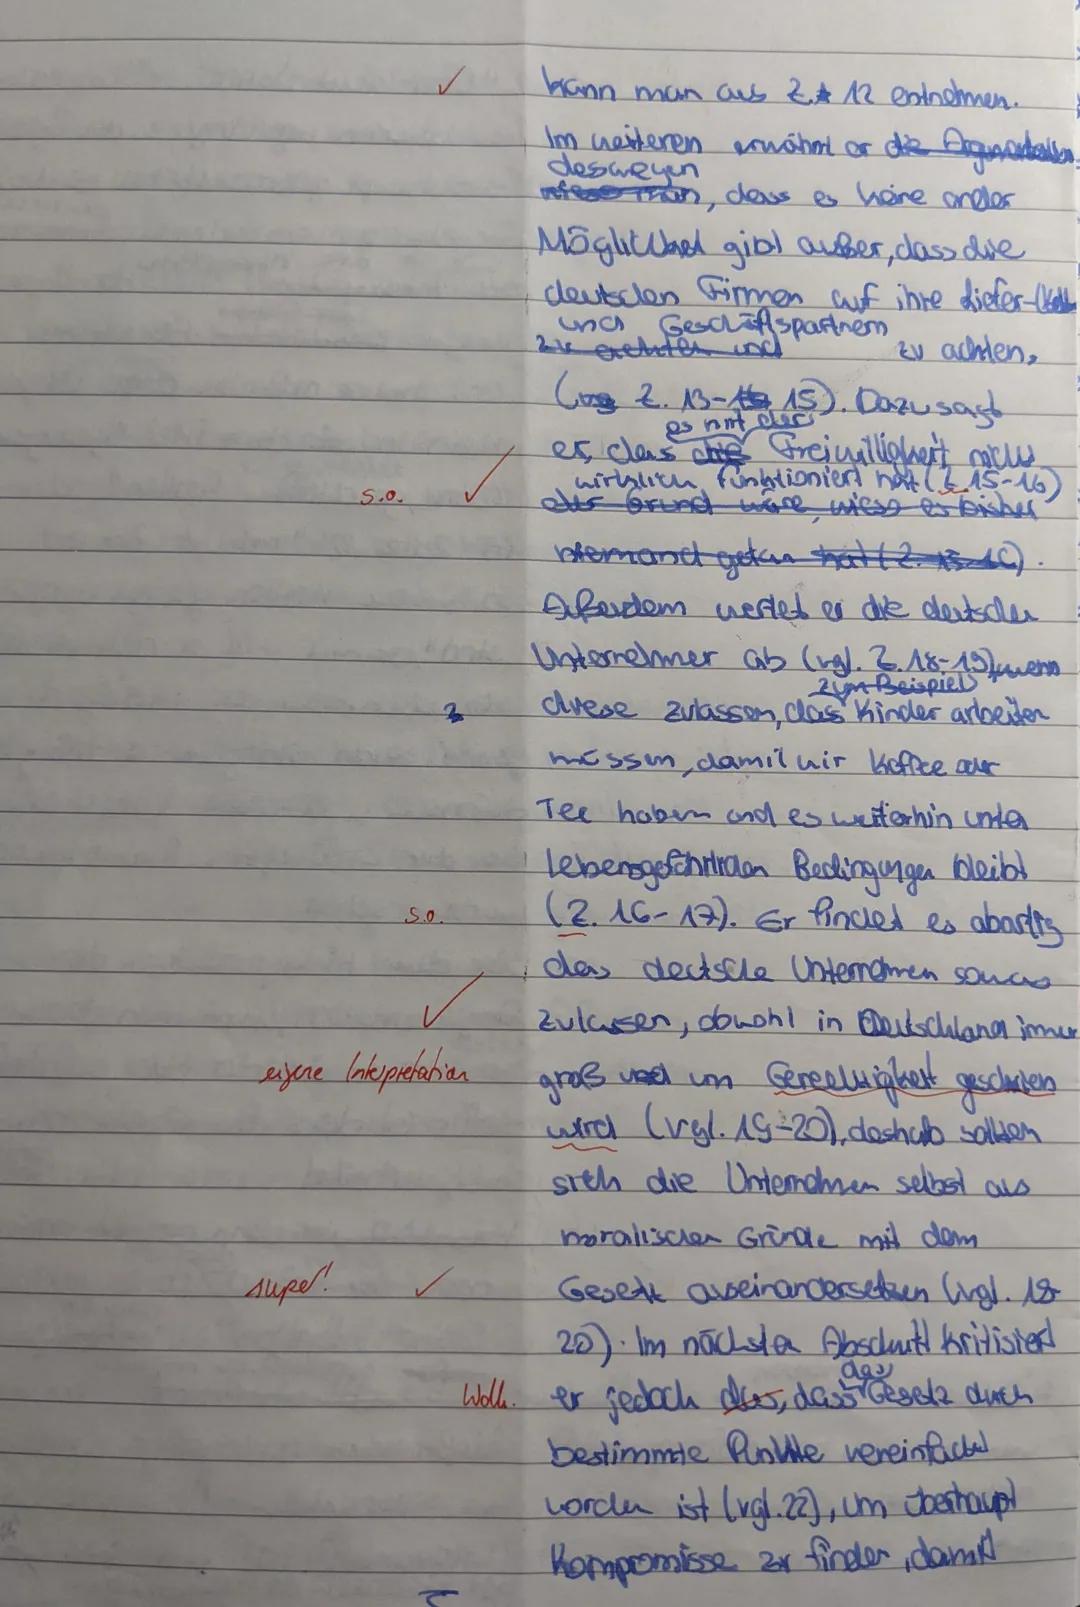 ✓ kann man aus Z. 12 entnehmen.
Im weiteren erwähnt er die Argumentation
deswegen
wieso man, dass es keine ander
Möglichkeit gibt außer, dass die
deutschen Firmen auf ihre Liefer-
und Geschäftspartnern
zu achten und zu achten,
(Z. 13-15). Dazu sagt
es mit der
er, dass die Freiwilligkeit nicht
wirklich funktioniert hat (Z. 15-16)
s.o. ✓ der Grund wäre, wieso es bisher
niemand getan hat (Z. 15-16).
Außerdem wertet er die deutsche
Unternehmer ab (vgl. Z. 18-19), wenn
zum Beispiel
diese zulassen, dass Kinder arbeiten
müssen, damit wir Kaffee oder
Tee haben und es weiterhin unter
lebensgefährlichen Bedingungen bleibt
s.o. (Z. 16-17). Er findet es abartig
das deutsche Unternehmen sowas
✓ zulassen, obwohl in Deutschland immer
eigene Interpretation groß um Gerechtigkeit geschrien
wird (vgl. 19-20), deshalb sollten
sich die Unternehmen selbst aus
moralischen Gründe mit dem
super! ✓ Gesetz auseinandersetzen (vgl. 18-
20). Im nächsten Abschnitt kritisiert
das
Wdh. er jedoch das, dass Gesetz durch
bestimmte Punkte vereinfacht
worden ist (vgl. 22), um überhaupt
Kompromisse zu finden, damit